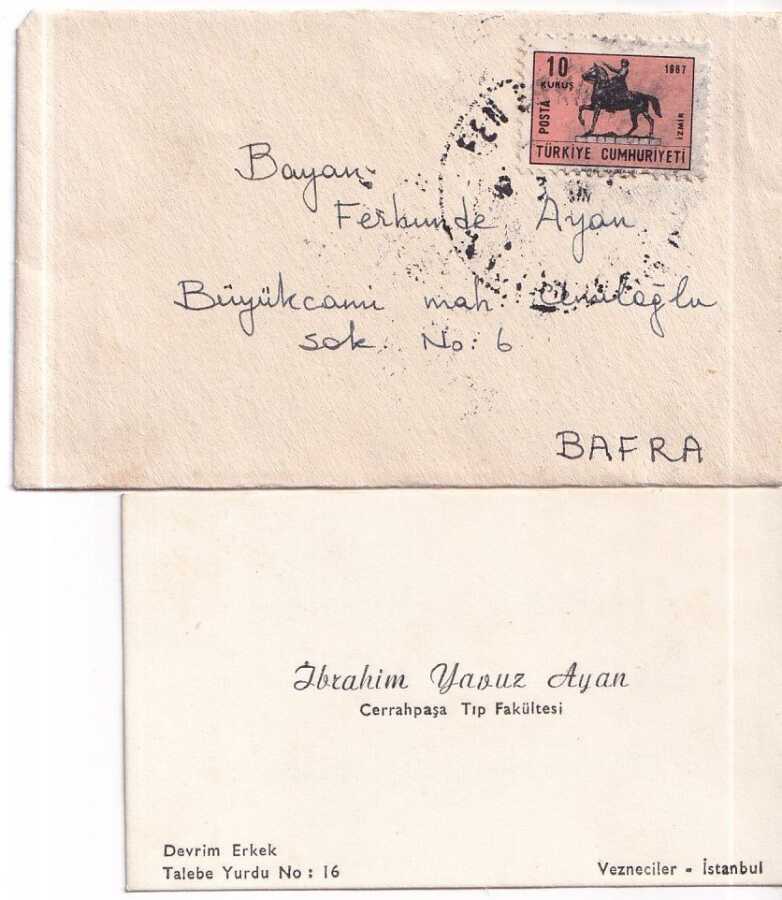 10
KURUŞ
1967
POSTA
İZMİR
TÜRKİYE CUMHURİYETİ
Bayan
Ferhunde Ayan
Büyükcami mah
sok. No: 6
BAFRA
İbrahim Yavuz Ayan
Cerrahpaşa Tıp Fakültesi
Devrim Erkek
Talebe Yurdu No : 16
Vezneciler - İstanbul